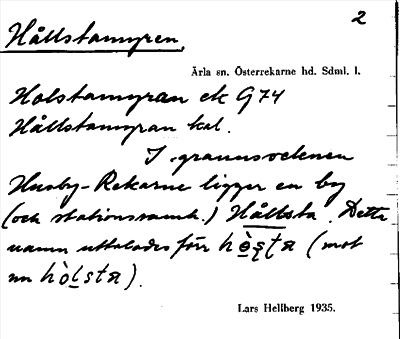 2
Hållstamyren.
Ärla sn. Österrekarne hd. Sdml. l.
Holstamyran ek G74
Hållstamyran kal.
I grannsocknen
Husby-Rekarne ligger en by
(och stationssamh.) Hållsta. Detta
namn uttalades förr
(mot
nu